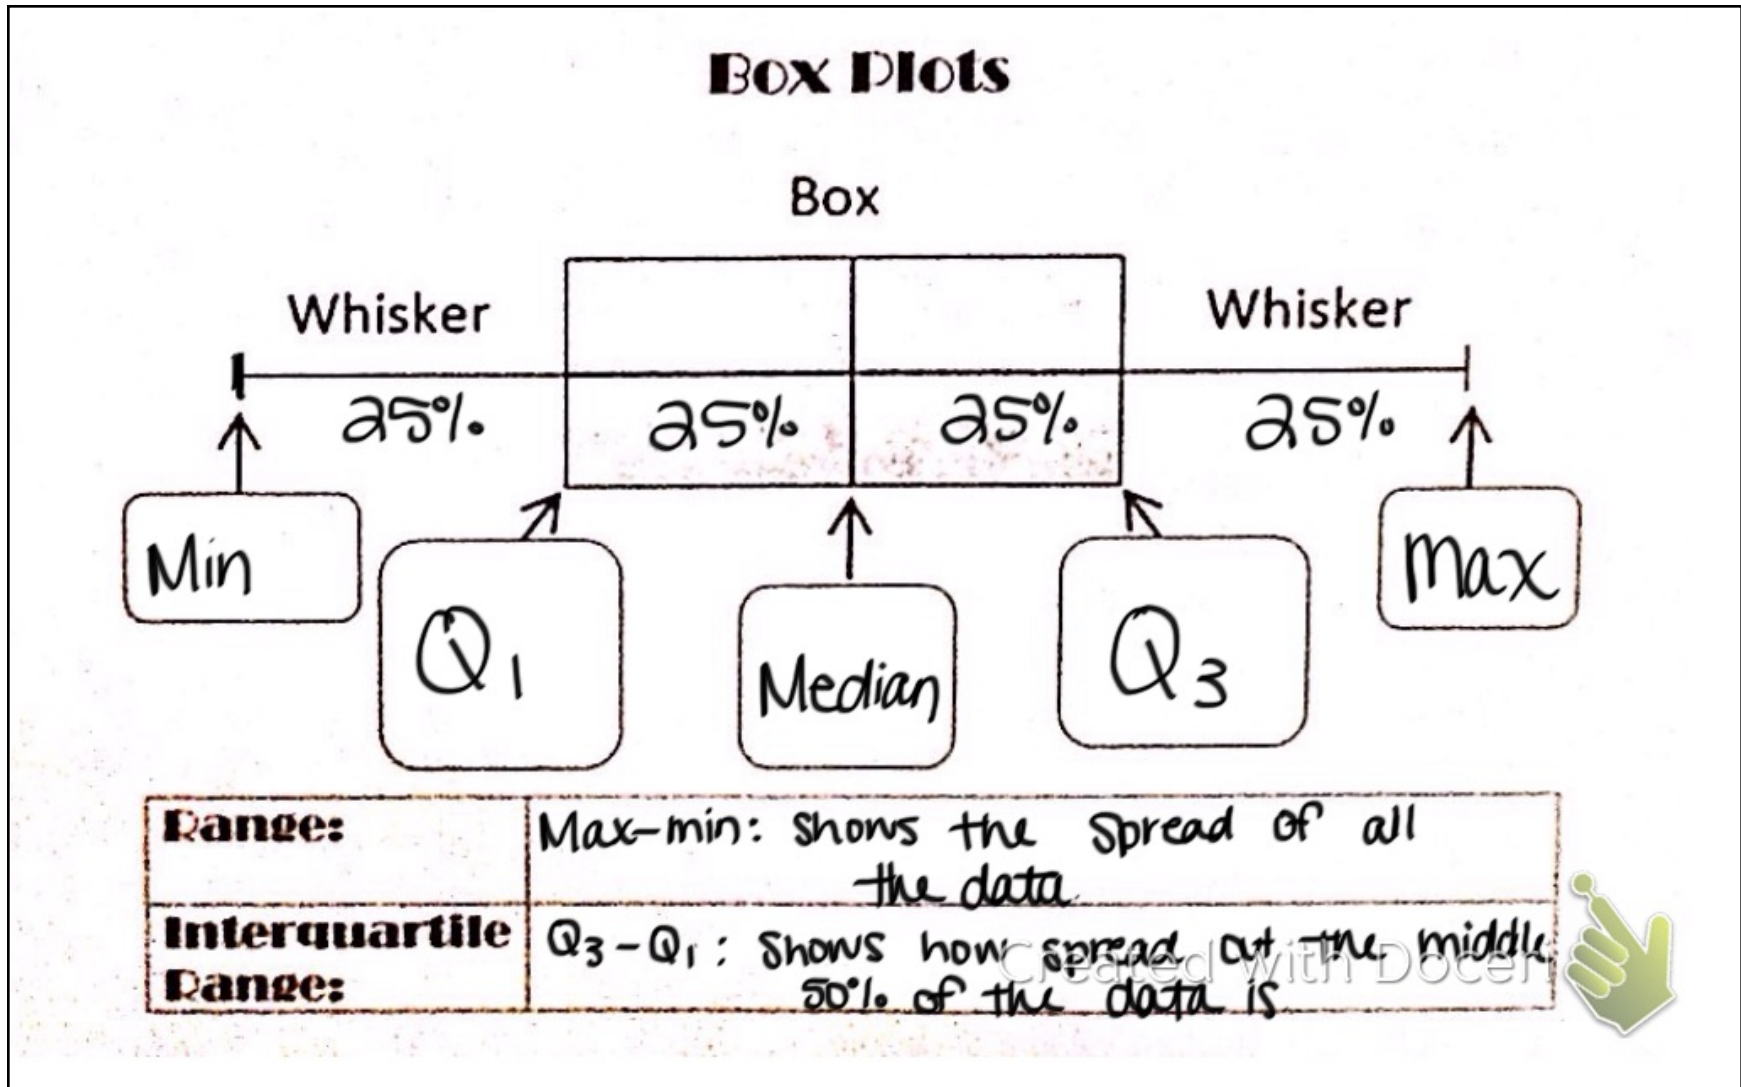 Box Plots
Box
Whisker
Whisker
25%
25%
25%
25%
Min
Q1
Median
Q3
Max
Range:
Max-min: shows the spread of all
the data
Interquartile
Range:
Q3-Q1: shows how spread out the middle
50% of the data is
Created with Docer